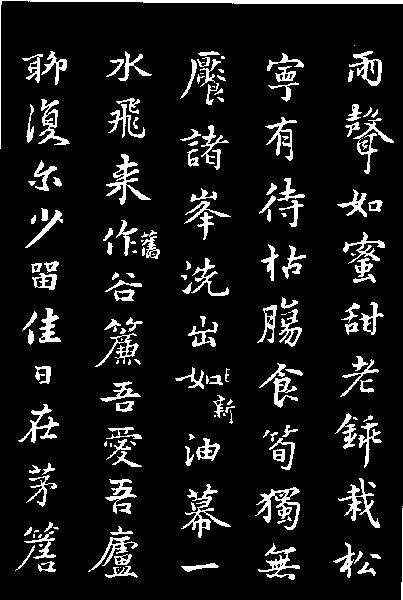 雨聲如蜜甜老栽松
寧有待枯腸食筍獨無
饜諸峯洗出如新油幕一
水飛来作舊谷簾吾愛吾廬
聊復尔少留佳日在茅簷